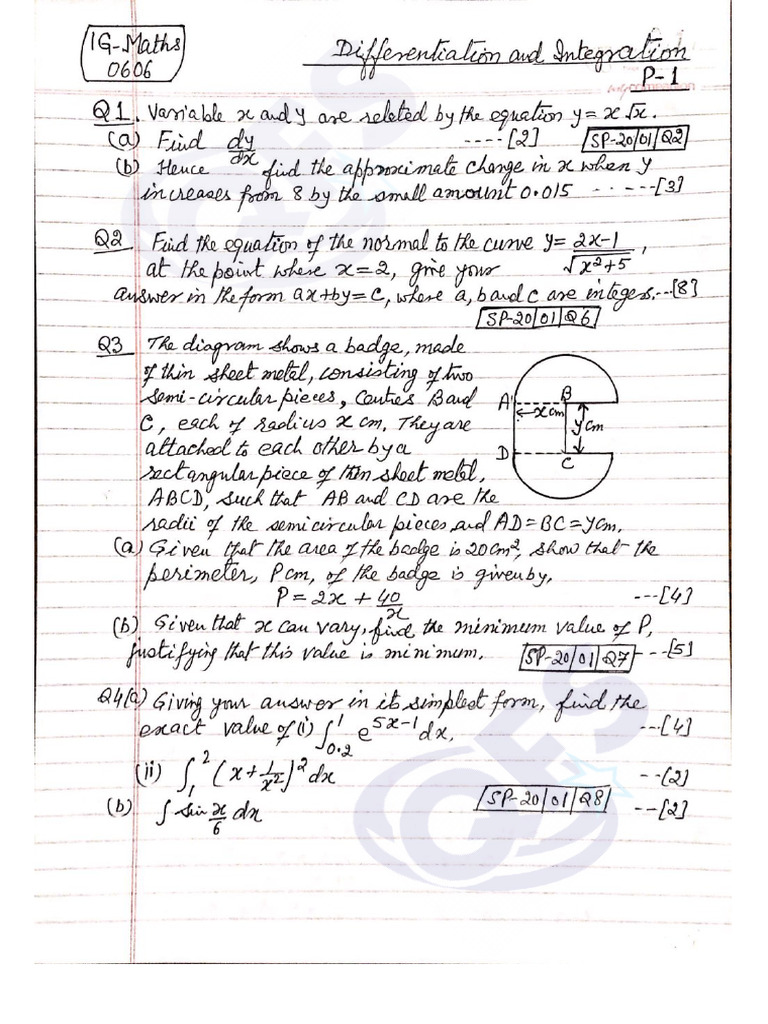 IG-Maths
0606
Differentiation and Integration
P-1
Q1. Variable x and y are releted by the equation y = x√x.
(a) Find dy/dx ----[2] SP-20/01/Q2
(b) Hence find the approximate change in x when y
increases from 8 by the small amount 0.015 ------[3]
Q2 Find the equation of the normal to the curve y = 2x-1/√x²+5,
at the point where x=2, give your
answer in the form ax+by=c, where a, b and c are integers.--[8]
SP-20/01/Q6
Q3 The diagram shows a badge, made
of thin sheet metal, consisting of two
semi-circular pieces, centres B and
C, each of radius x cm. They are
attached to each other by a
rectangular piece of thin sheet metal,
ABCD, such that AB and CD are the
radii of the semicircular pieces and AD=BC=ycm.
A B
x cm
y cm
D C
(a) Given that the area of the badge is 20cm², show that the
perimeter, P cm, of the badge is given by,
P = 2x + 40/x ---[4]
(b) Given that x can vary, find the minimum value of P,
justifying that this value is minimum. SP-20/01/Q7 ---[5]
Q4(a) Giving your answer in its simplest form, find the
exact value of (i) ∫₀.₂¹ e^(5x-1) dx, ---[4]
(ii) ∫₁² (x+1/x²)² dx --(2]
(b) ∫ sin x/6 dx SP-20/01/Q8 --[2]
GES